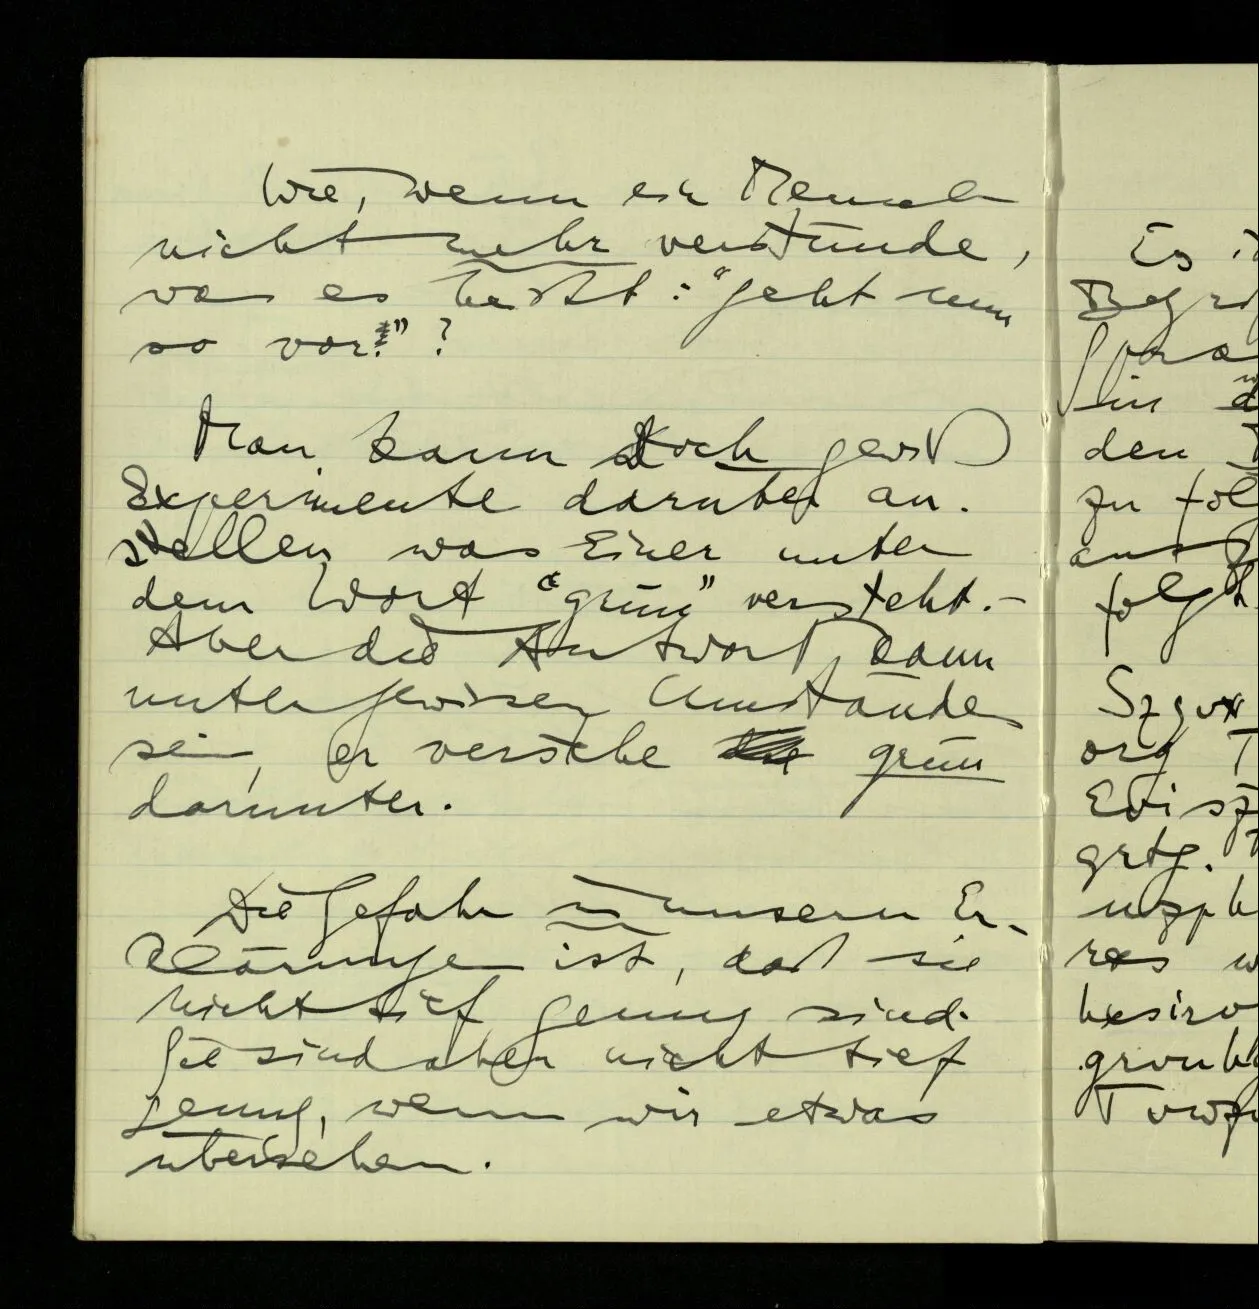 Wie, wenn ein Mensch
nicht mehr verstünde,
was es heißt: "geht nun
so vor!"?
Man kann doch gewiß
Experimente darüber an-
stellen was Einer unter
dem Wort "grün" versteht. –
Aber die Antwort kann
unter gewissen Umständen
sein, er verstehe grün
darunter.
Die Gefahr in unsern Er-
klärungen ist, daß sie
nicht tief genug sind.
Sie sind aber nicht tief
genug, wenn wir etwas
übersehen.
Es
in
den
zu
folgt
org
grtg.